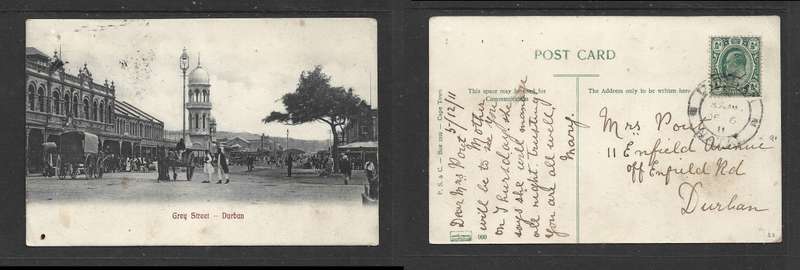 Grey Street - Durban
POST CARD
This space may be used for
Communication
The Address only to be written here
P. S. & C. – Box 100 – Cape Town
5/12/11
Dear Mrs Port
Mother
will be to see you
on Thursday, she
says she will manage
all night. trusting
you are all well
Mary.
900
Mrs Port
11 Enfield Avenue
off Enfield Rd
Durban